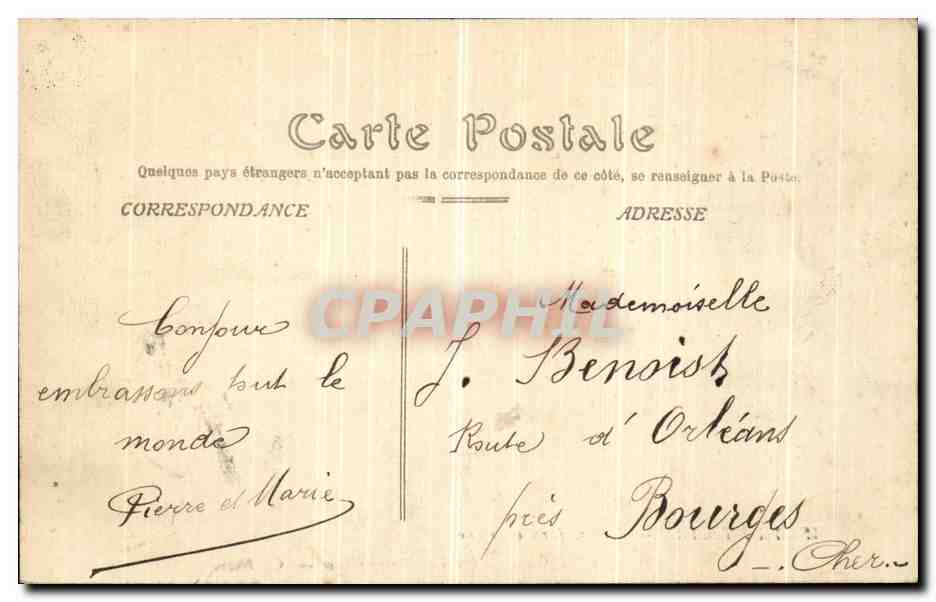 Carte Postale
Quelques pays étrangers n'acceptant pas la correspondance de ce côté, se renseigner à la Poste.
CORRESPONDANCE
ADRESSE
Bonjour
embrassons tout le
monde
Pierre et Marie
Mademoiselle
J. Benoist
Route d'Orléans
près Bourges
Cher
CPAPHIL